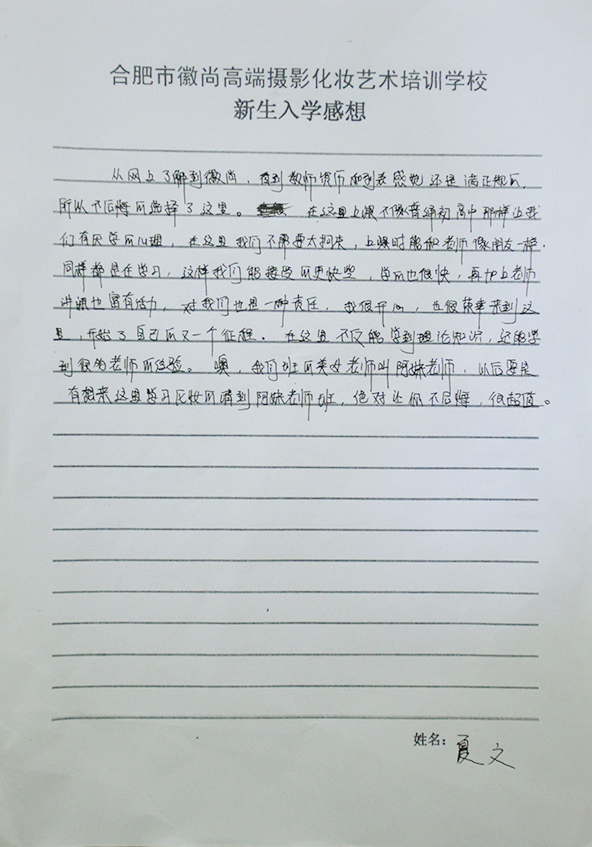 合肥市徽尚高端摄影化妆艺术培训学校
新生入学感想
从网上了解到徽尚，看到教师货币和列表感觉还是满正规的，
所以不后悔的选择了这里。在这里上课不像普通初高中那样让我
们有厌学的心理，在这里我们不需要太拘束，上课时能和老师像朋友一样，
同样都是在学习，这样我们能接受的更快些，学的也很快，再加上老师
讲课也富有活力，对我们也是一种责任，我很开心，也很荣幸来到这
里，开始了自己的又一个征程。在这里不仅能学到理论知识，还能学
到很多老师的经验。噢，我们班的美女老师叫阿妹老师，以后要是
有想来这里学习化妆的请到阿妹老师班，绝对让你不后悔，很超值。
姓名：夏文